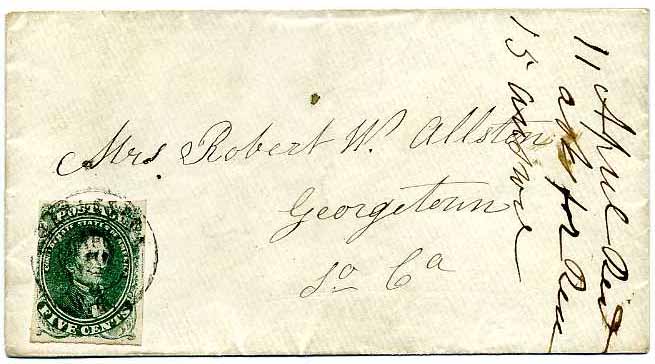 Mrs. Robert W. Allston
Georgetown
So Ca
11 April Recd
ask for
15 answer
POSTAGE
CONFEDERATE STATES OF AMERICA
FIVE CENTS